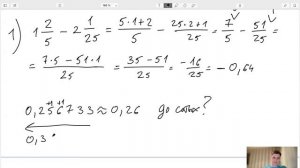 1) 1 2/5 - 2 1/25 = (5·1+2)/5 - (25·2+1)/25 = 7/5 - 51/25 =
= (7·5-51·1)/25 = (35-51)/25 = -16/25 = -0,64
+1 +1
0,256733 ≈ 0,26 до сотых?
0,3